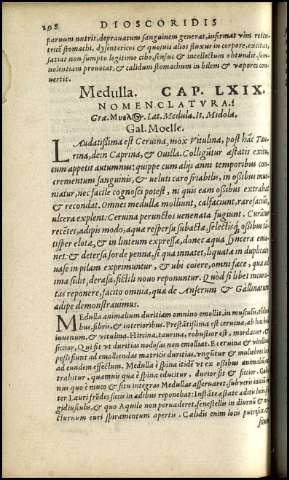 298 DIOSCORIDIS
paruum nutrit, deprauatum sanguinem generat, infirmat vim
tricẽ stomachi, dysentericos & quouis alios fluxus in corpore, excitat,
satias non sumpto legitimo cibo, sensus & intellectum obtundit,
pronocat, & calidum stomachum in bilem & vapores con-
uertit.
Medulla. CAP. LXIX.
NOMENCLATVRA.
Gra. Lat. Medula. It. Midola.
Gal. Moelle.
LAudatissima est Ceruina, mox Vitulina, post hãc Tau-
rina, dein Caprina, & Ouilla. Colligitur æstatis exitu,
cum appetit autumnus: quippe cum alijs anni temporibus con-
crementum sanguinis, & veluti caro friabilis, in ossibus inu-
niatur, nec facile cognosci potest, ni quis eam ossibus extrahat
& recondat. Omnes medullæ molliunt, calfaciunt, rarefaciũt,
ulcera explent: Ceruina perunctos venenata fugiunt. Curatur
recẽs, adipis modo, aqua respersa subacta, selectisq́; ossibus
tisper elota, & in linteum expressa, donec aqua syncera ema-
net: & detersa sorde penna, si qua innatet, liquata in duplici
uase in pilam exprimuntur, & ubi coiere, omni face, qua
ima sidit, derasa, fictili nouo reponuntur. Quòd si libet
ratas reponere, facito omnia, quæ de Anserum & Gallinarum
adipe demonstrauimus.
MEdulla animalium duritiam omnino emollit, in musculis,
bus, fibris, & interioribus. Prestãtissima est ceruina, ab hac
& vitulina. Hircina, taurina, robustior est, mordax, &
siccior, Qui fit vt duritias nodosas non emolliat. E ceruina & vitulina
possessi ad emolliendas matricis duritias, vngitur & mulieb
ad eundem effectum. Medulla è spina
trahitur, quamuis quæ è spina educitur, durior sit & siccior.
nus quo è mucu & situ integras Medullas asseruaret, subuere
ter Lauri frõdes siccas in ædibus reponebat: instãte æstate
gidiusculis, & quo Aquilo non peruaderet, fenestellis in diurnũ &
cturnum euri spiramentum apertis. Calidis enim locis